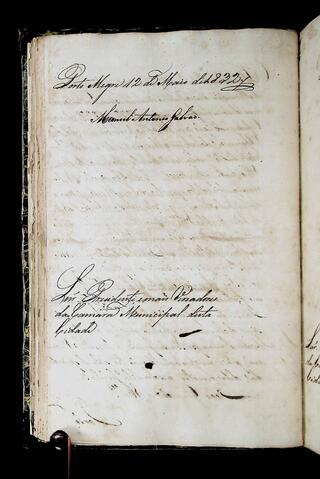 Porto Alegre 12 de Maio de 1832
Manoel Antonio Galvão
Snr. Presidente e mais Vereadores
da Camara Municipal desta
Cidade